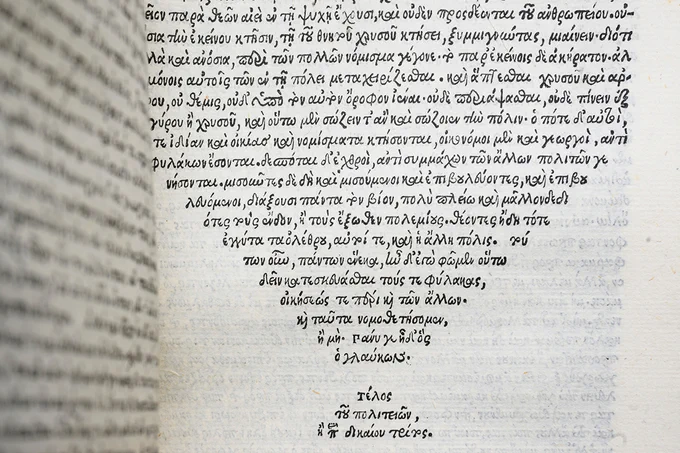 εῖον παρὰ θεῶν αἰεὶ ἐν τῇ ψυχῇ ἔχουσι, καὶ οὐδὲν προσδέονται τοῦ ἀνθρωπείου. οὐ-
σια τὴν ἐκείνου κτῆσιν, τῇ τοῦ θνητοῦ χρυσοῦ κτήσει, ξυμμιγνύντας, μιαίνειν· διότι
λὰ καὶ ἀνόσια, περὶ τῶν πολλῶν νόμισμα γέγονε· τὸ παρ' ἐκείνοις δὲ ἀκήρατον. ἀλ
μόνοις αὐτοῖς τῶν ἐν τῇ πόλει μεταχειρίζεσθαι. καὶ ἅπτεσθαι χρυσοῦ καὶ αρ-
ου, οὐ θέμις, οὐδ' ὑπὸ τὸν αὐτὸν ὄροφον ἰέναι. οὐδὲ περιάψασθαι, οὐδὲ πίνειν ἐξ
γύρου ἢ χρυσοῦ, καὶ οὕτω μὲν σώζειν τ' ἂν καὶ σώζοιεν τὴν πόλιν. ὁ πότε δ' αὐτοὶ,
τε ἰδίαν καὶ οἰκίας καὶ νομίσματα κτήσονται, οἰκονόμοι μὲν καὶ γεωργοὶ, αντὶ
φυλάκων ἔσονται. δεσπόται δ' ἐχθροὶ, αντὶ συμμάχων τῶν ἄλλων πολιτῶν γε
νήσονται. μισοῦντες δὲ δὴ καὶ μισούμενοι καὶ ἐπιβουλεύοντες, καὶ ἐπιβου
λευόμενοι, διάξουσι πάντα τὸν βίον, πολὺ πλείω καὶ μᾶλλον δεδι
ότες τοὺς ἔνδον, ἢ τοὺς ἔξωθεν πολεμίους. θέοντες ἤδη τότε
ἐγγύτατα ὀλέθρου, αὐτοί τε, καὶ ἡ ἄλλη πόλις. τού
των οὖν, πάντων ἕνεκα, ἦν δ' ἐγὼ φῶμεν οὕτω
δεῖν κατεσκευάσθαι τοὺς τε φύλακας,
οἰκήσεώς τε πέρι καὶ τῶν ἄλλων.
καὶ ταῦτα νομοθετήσομεν,
ἢ μή. πάνυ γε ἦ δ' ὃς
ὁ γλαύκων.
τέλος
τοῦ πολιτειῶν,
ἢ περὶ δικαίου τρίτου.